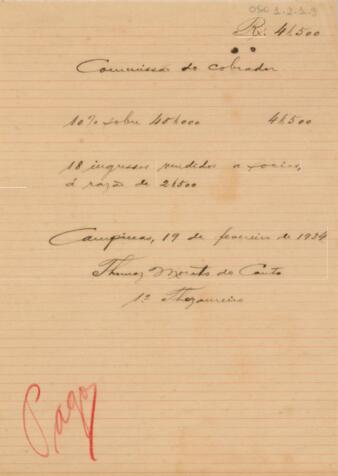 OSC 1.2.1.9
Rs. 4$500
Commissão do cobrador
10% sobre 45$000 4$500
18 ingressos vendidos a socios,
á razão de 2$500
Campinas, 19 de fevereiro de 1934
Moraes do Canto
1º Thezoureiro
Pago